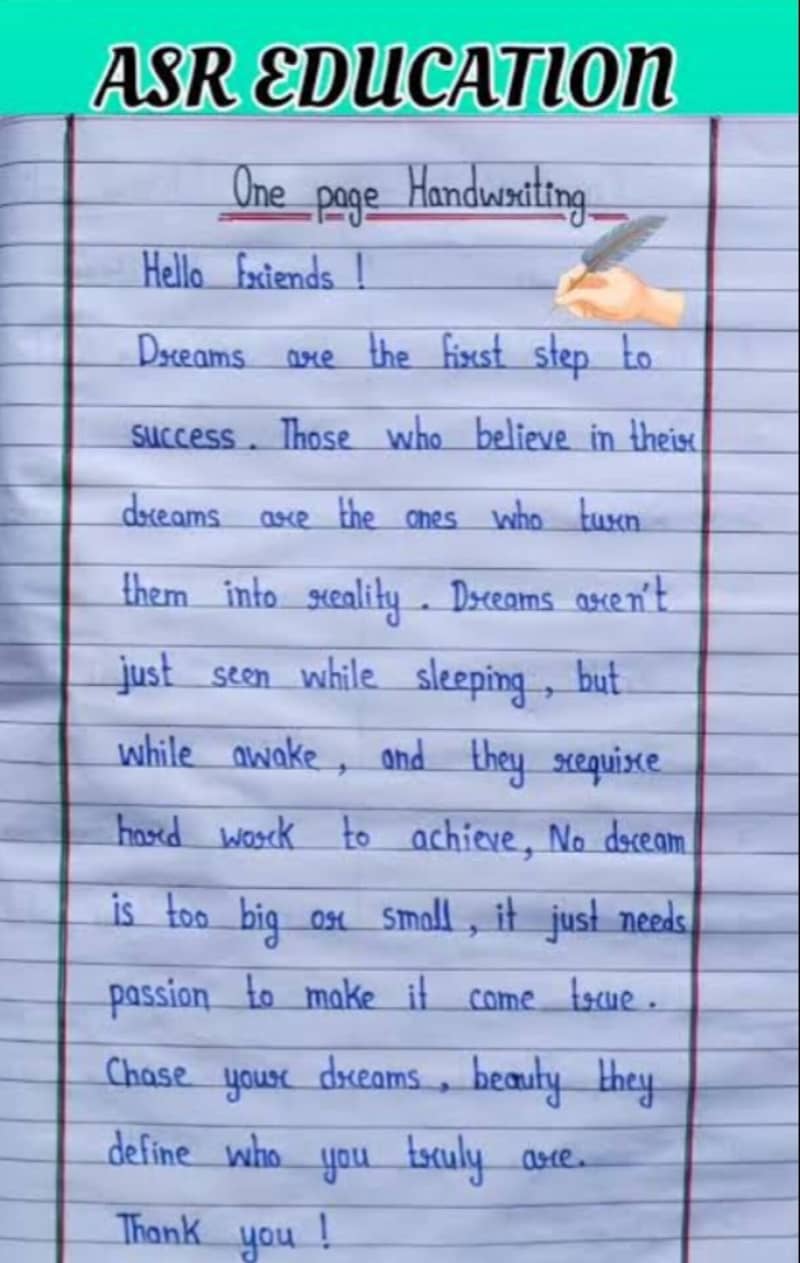 ASR EDUCATION
One page Handwriting
Hello friends !
Dreams are the first step to
success . Those who believe in their
dreams are the ones who turn
them into reality . Dreams aren't
just seen while sleeping , but
while awake , and they require
hard work to achieve, No dream
is too big or small , it just needs
passion to make it come true .
Chase your dreams , beauty they
define who you truly are.
Thank you !